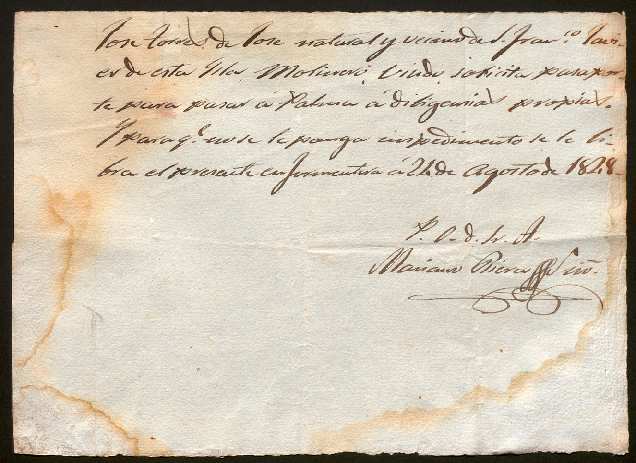 Jose torres de Jose natural y vecino de S. Fran.co Javi-
er de esta Ysla Molinero, Viudo, solicita pasapor-
te para pasar á Palma á diligencias propias.
Y para q.e no se le ponga impedimento se le li-
bra el presente en formentera á 21 de Agosto de 1828.
P. O. d. Sr. A.
Mariano Riera Srio.